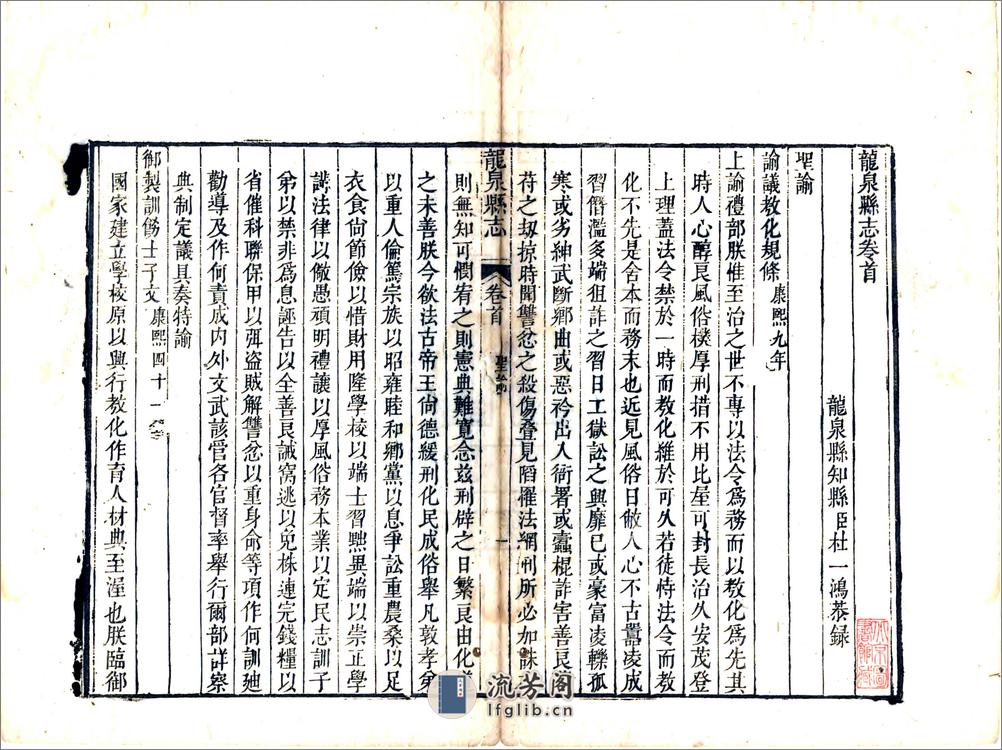 龍泉縣志卷首
龍泉縣知縣臣杜一鴻恭録
聖諭
諭議教化規條康熙九年
上諭禮部朕惟至治之世不專以法令爲務而以教化爲先其
時人心醇良風俗樸厚刑措不用比屋可封長治久安茂登
上理蓋法令禁於一時而教化維於可久若徒恃法令而教
化不先是舍本而務末也近見風俗日敝人心不古囂凌成
習僭濫多端狙詐之習日工獄訟之興靡已或豪富凌轢孤
寒或劣紳武斷鄉曲或惡衿出入衙署或蠹棍詐害善良
苻之刧掠時聞讐忿之殺傷叠見䧟罹法網刑所必加誅
則無知可憫宥之則憲典難寛念茲刑辟之日繁良由化
之未善朕今欲法古帝王尙德緩刑化民成俗舉凡敦孝弟
以重人倫篤宗族以昭雍睦和鄉黨以息爭訟重農桑以足
衣食尙節儉以惜財用隆學校以端士習黜異端以崇正學
講法律以儆愚頑明禮讓以厚風俗務本業以定民志訓子
弟以禁非爲息誣告以全善良誡窩逃以免株連完錢糧以
省催科聯保甲以弭盜賊解讐忿以重身命等項作何訓廸
勸導及作何責成內外文武該管各官督率舉行爾部詳察
典制定議具奏特諭
御製訓飭士子文康熙四十一年
國家建立學校原以興行教化作育人材典至渥也朕臨御
龍泉縣志
卷首
聖諭
一
流芳阁
lfglib.cn